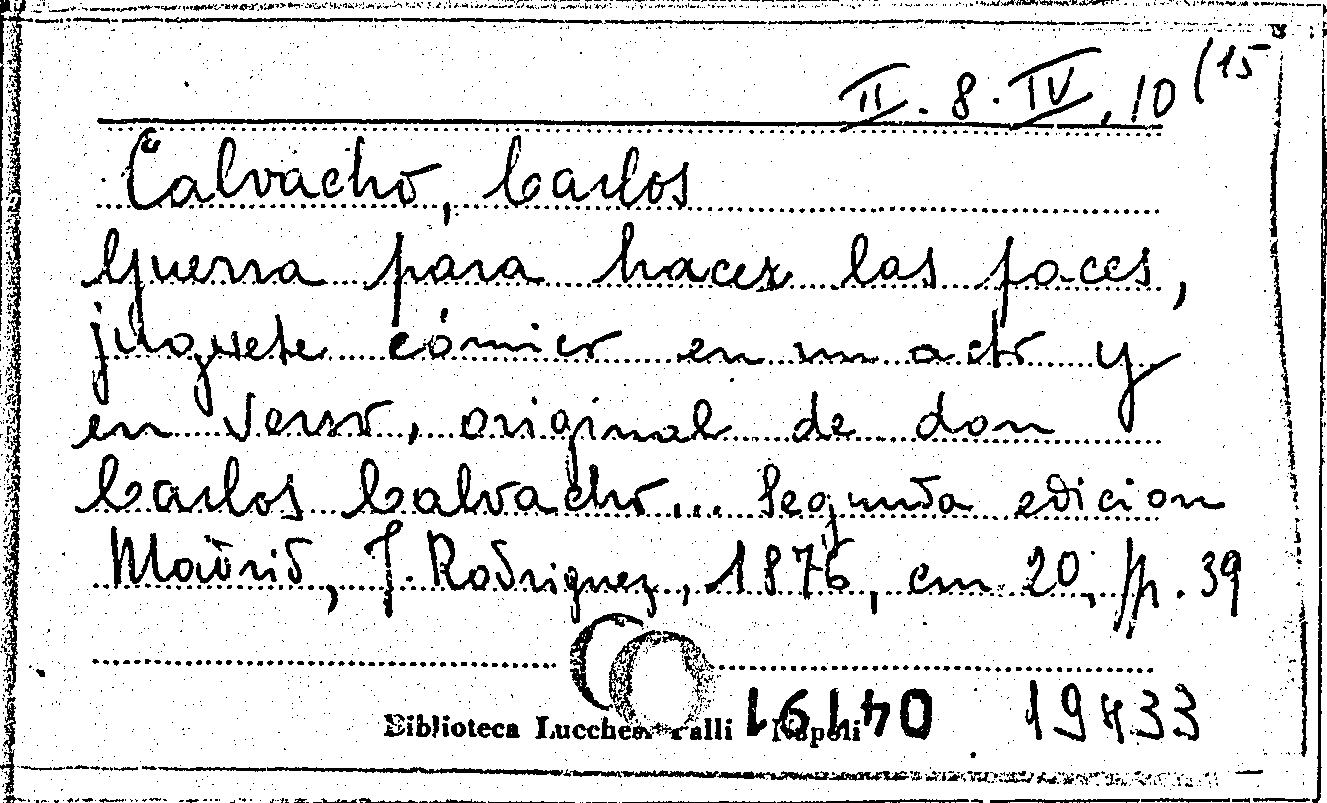 II. 8. IV, 10 (15
Calvacho, Carlos
Guerra para hacer las paces,
juguete cómico en un acto y
en verso, original de don
Carlos Calvacho... Segunda edicion
Madrid, J. Rodriguez, 1876, cm 20, pp. 39
Biblioteca Lucchesi Palli Napoli
19433